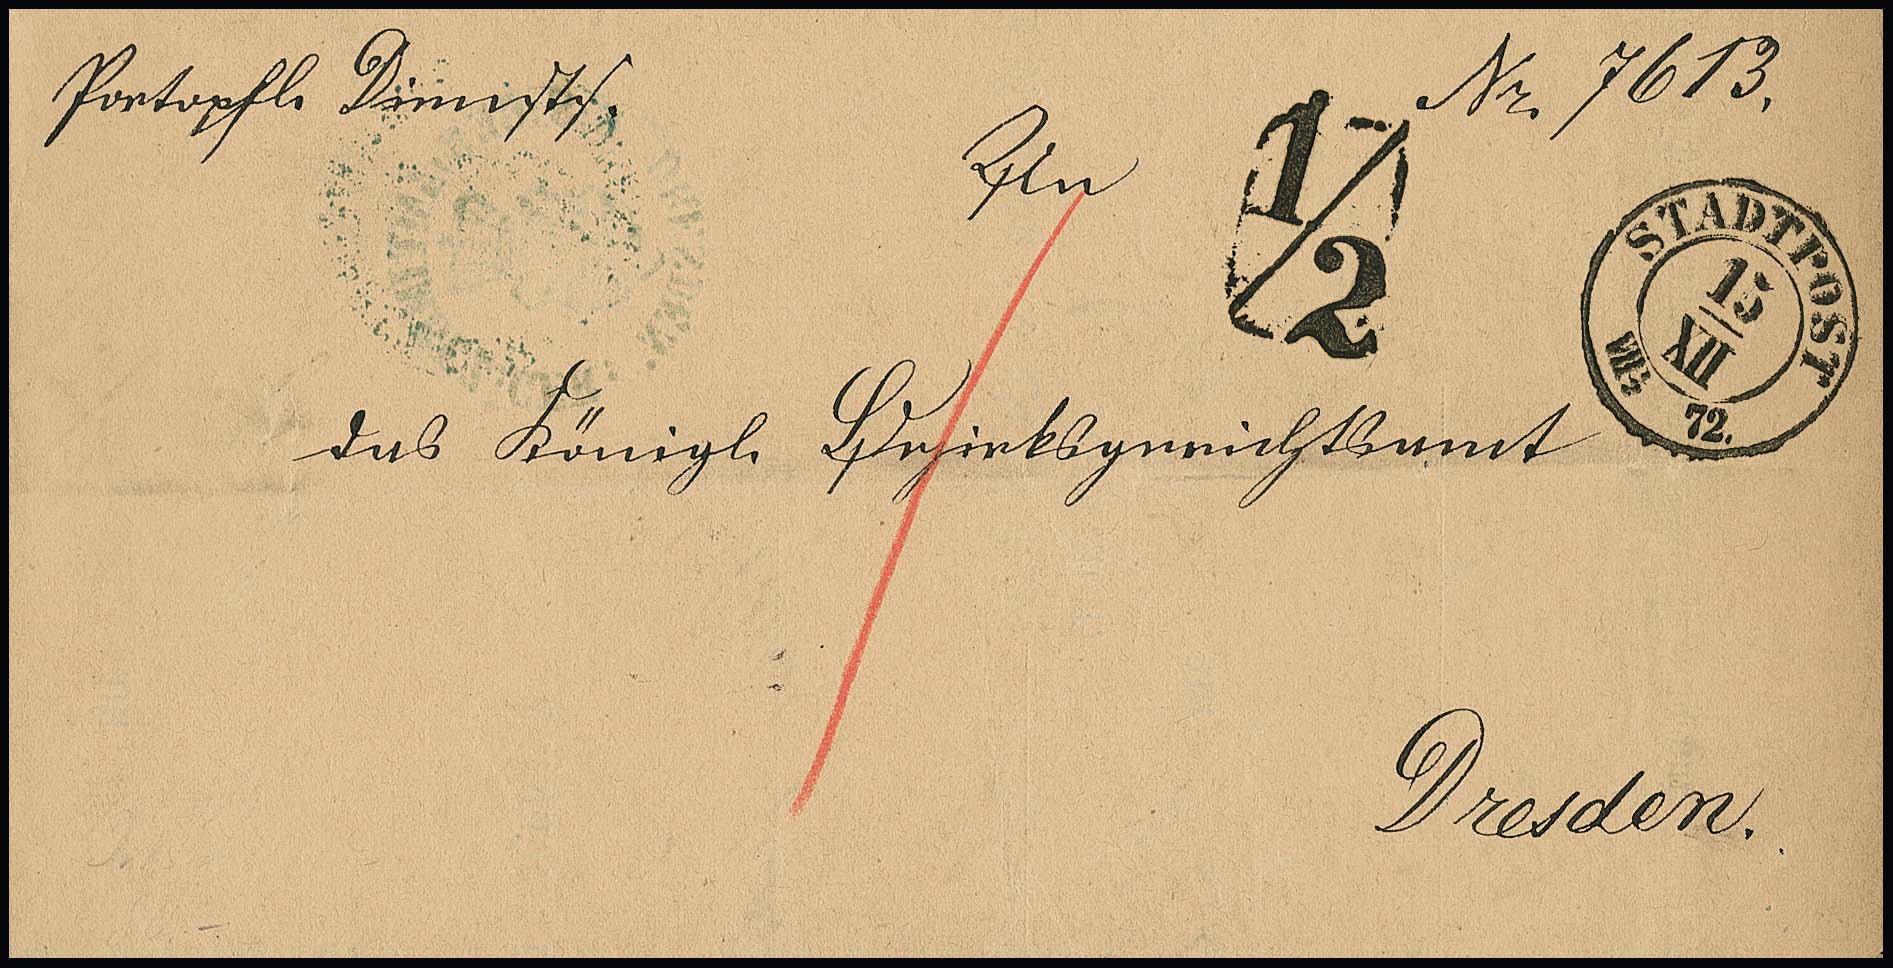 Portopfl. Diensts.
Nr. 7613.
An
1/2
STADTPOST
15
XII
72.
das Königl. Bezirksgerichtsamt
Dresden.